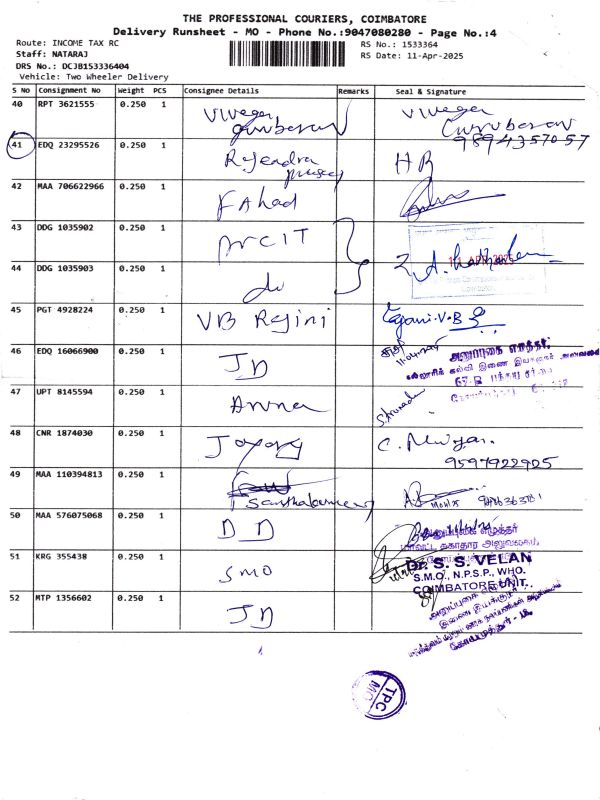 THE PROFESSIONAL COURIERS, COIMBATORE
Delivery Runsheet - MO - Phone No.:9047080280 - Page No.:4
Route: INCOME TAX RC
RS No.: 1533364
Staff: NATARAJ
RS Date: 11-Apr-2025
DRS No.: DCJB153336404
Vehicle: Two Wheeler Delivery
S No Consignment No Weight PCS Consignee Details Remarks Seal & Signature
40 RPT 3621555 0.250 1
41 EDQ 23295526 0.250 1 Rajendra
9894357057
42 MAA 706622966 0.250 1 Fahad
43 DDG 1035902 0.250 1
44 DDG 1035903 0.250 1 do
45 PGT 4928224 0.250 1 VB Rajini Rajani.V.B
46 EDQ 16066900 0.250 1 JD
அனுப்புகை எழுத்தர்,
47 UPT 8145594 0.250 1
48 CNR 1874030 0.250 1
9597922905
49 MAA 110394813 0.250 1
50 MAA 576075068 0.250 1 DD
51 KRG 355438 0.250 1 SMO
Dr. S. S. VELAN
S.M.O., N.P.S.P., WHO.
COIMBATORE UNIT.
52 MTP 1356602 0.250 1 JD
TPC
MO